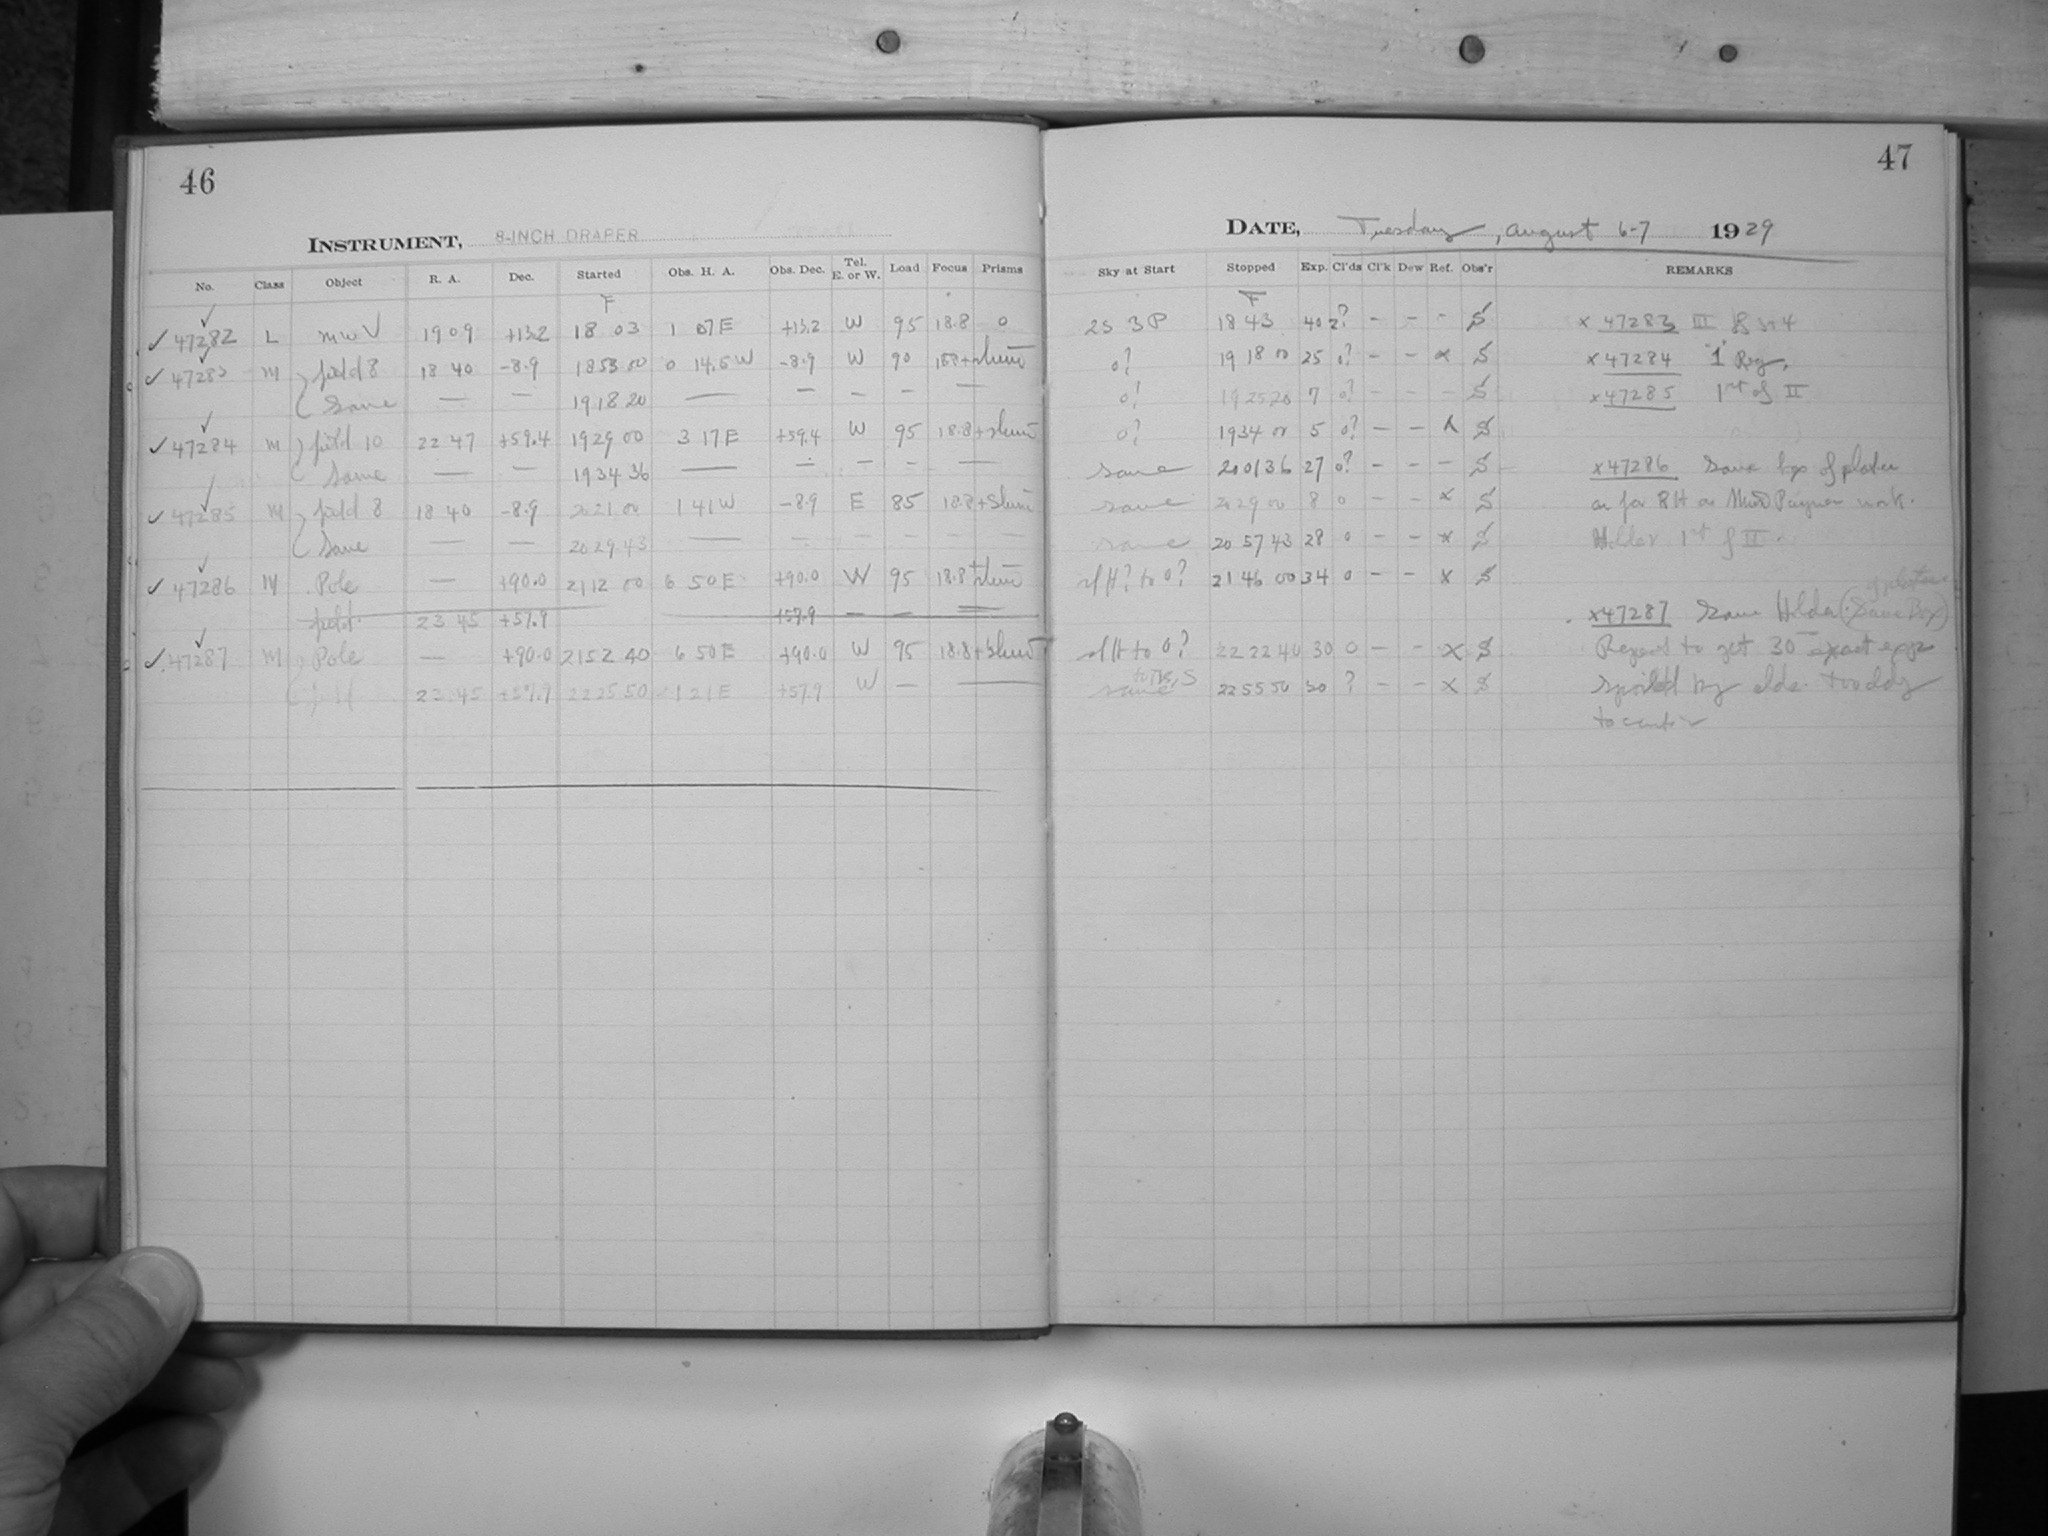 46
INSTRUMENT, 8-INCH DRAPER
No. Class Object R. A. Dec. Started Obs. H. A. Obs. Dec. Tel. E. or W. Load Focus Prisms
F
✓ 47282 L MWV 19 09 +13.2 18 03 1 07 E +13.2 W 95 18.8 0
✓ 47283 M field 8 18 40 -8.9 18 53 00 0 14.6 W -8.9 W 90 18.8
Same — — 19 18 20 — — — — —
✓ 47284 M field 10 22 47 +59.4 19 29 00 3 17 E +59.4 W 95 18.8
Same — — 19 34 36 — — — — —
✓ 47285 M field 8 18 40 -8.9 20 21 00 1 41 W -8.9 E 85 18.8
Same — — 20 29 43 — — — — — —
✓ 47286 M Pole — +90.0 21 12 00 6 50 E +90.0 W 95 18.8
field 23 45 +57.9 +57.9 — — —
✓ 47287 M Pole — +90.0 21 52 40 6 50 E +90.0 W 95 18.8
23 45 +57.9 22 25 50 1 21 E +57.9 W — —
47
DATE, Tuesday, August 6-7 1929
Sky at Start Stopped Exp. Cl'ds Cl'k Dew Ref. Obs'r REMARKS
F
2S 3P 18 43 40 2? - - - S x 47283 III
0? 19 18 00 25 0? - - x S x 47284 "1" Reg.
0? 19 25 20 7 0? - - - S x 47285 1st of II
0? 19 34 00 5 0? - - x S
same 20 01 36 27 0? - - - S x 47286 Same type of plates
same 20 29 00 8 0 - - x S as for RH or Miss Payne's work.
same 20 57 43 28 0 - - x S Holder 1st of II
to 0? 21 46 00 34 0 - - x S
x 47287 Same Holder (Same Box)
to 0? 22 22 40 30 0 - - x S Repeat to get 30 exact exps
same 22 55 50 30 ? - - x S spoiled by clds. too cldy
to